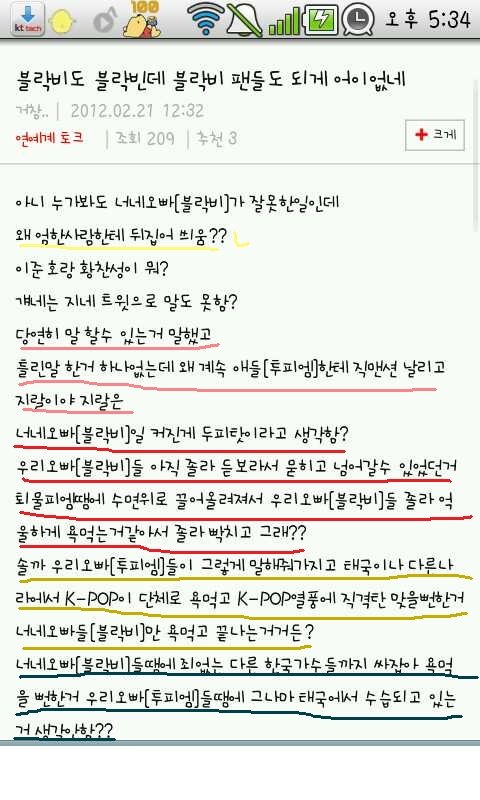 kt tech
100
오후 5:34
블락비도 블락빈데 블락비 팬들도 되게 어이없네
거창.. | 2012.02.21 12:32
연예계 토크 | 조회 209 | 추천 3
+ 크게
아니 누가봐도 너네오빠[블락비]가 잘못한일인데
왜 엄한사람한테 뒤집어 씌움??
이준호랑 황찬성이 뭐?
걔네는 지네 트윗으로 말도 못함?
당연히 말 할수 있는거 말했고
틀린말 한거 하나없는데 왜 계속 애들[투피엠]한테 직맨션 날리고
지랄이야 지랄은
너네오빠[블락비]일 커진게 두피탓이라고 생각함?
우리오빠[블락비]들 아직 졸라 듣보라서 묻히고 넘어갈수 있었던거
퇴물피엠땜에 수면위로 끌어올려져서 우리오빠[블락비]들 졸라 억
울하게 욕먹는거같아서 졸라 빡치고 그래??
솔까 우리오빠[투피엠]들이 그렇게 말해줘가지고 태국이나 다른나
라에서 K-POP이 단체로 욕먹고 K-POP열풍에 직격탄 맞을뻔한거
너네오빠들[블락비]만 욕먹고 끝나는거거든?
너네오빠[블락비]들땜에 죄없는 다른 한국가수들까지 싸잡아 욕먹
을 뻔한거 우리오빠[투피엠]들땜에 그나마 태국에서 수습되고 있는
거 생각안함??